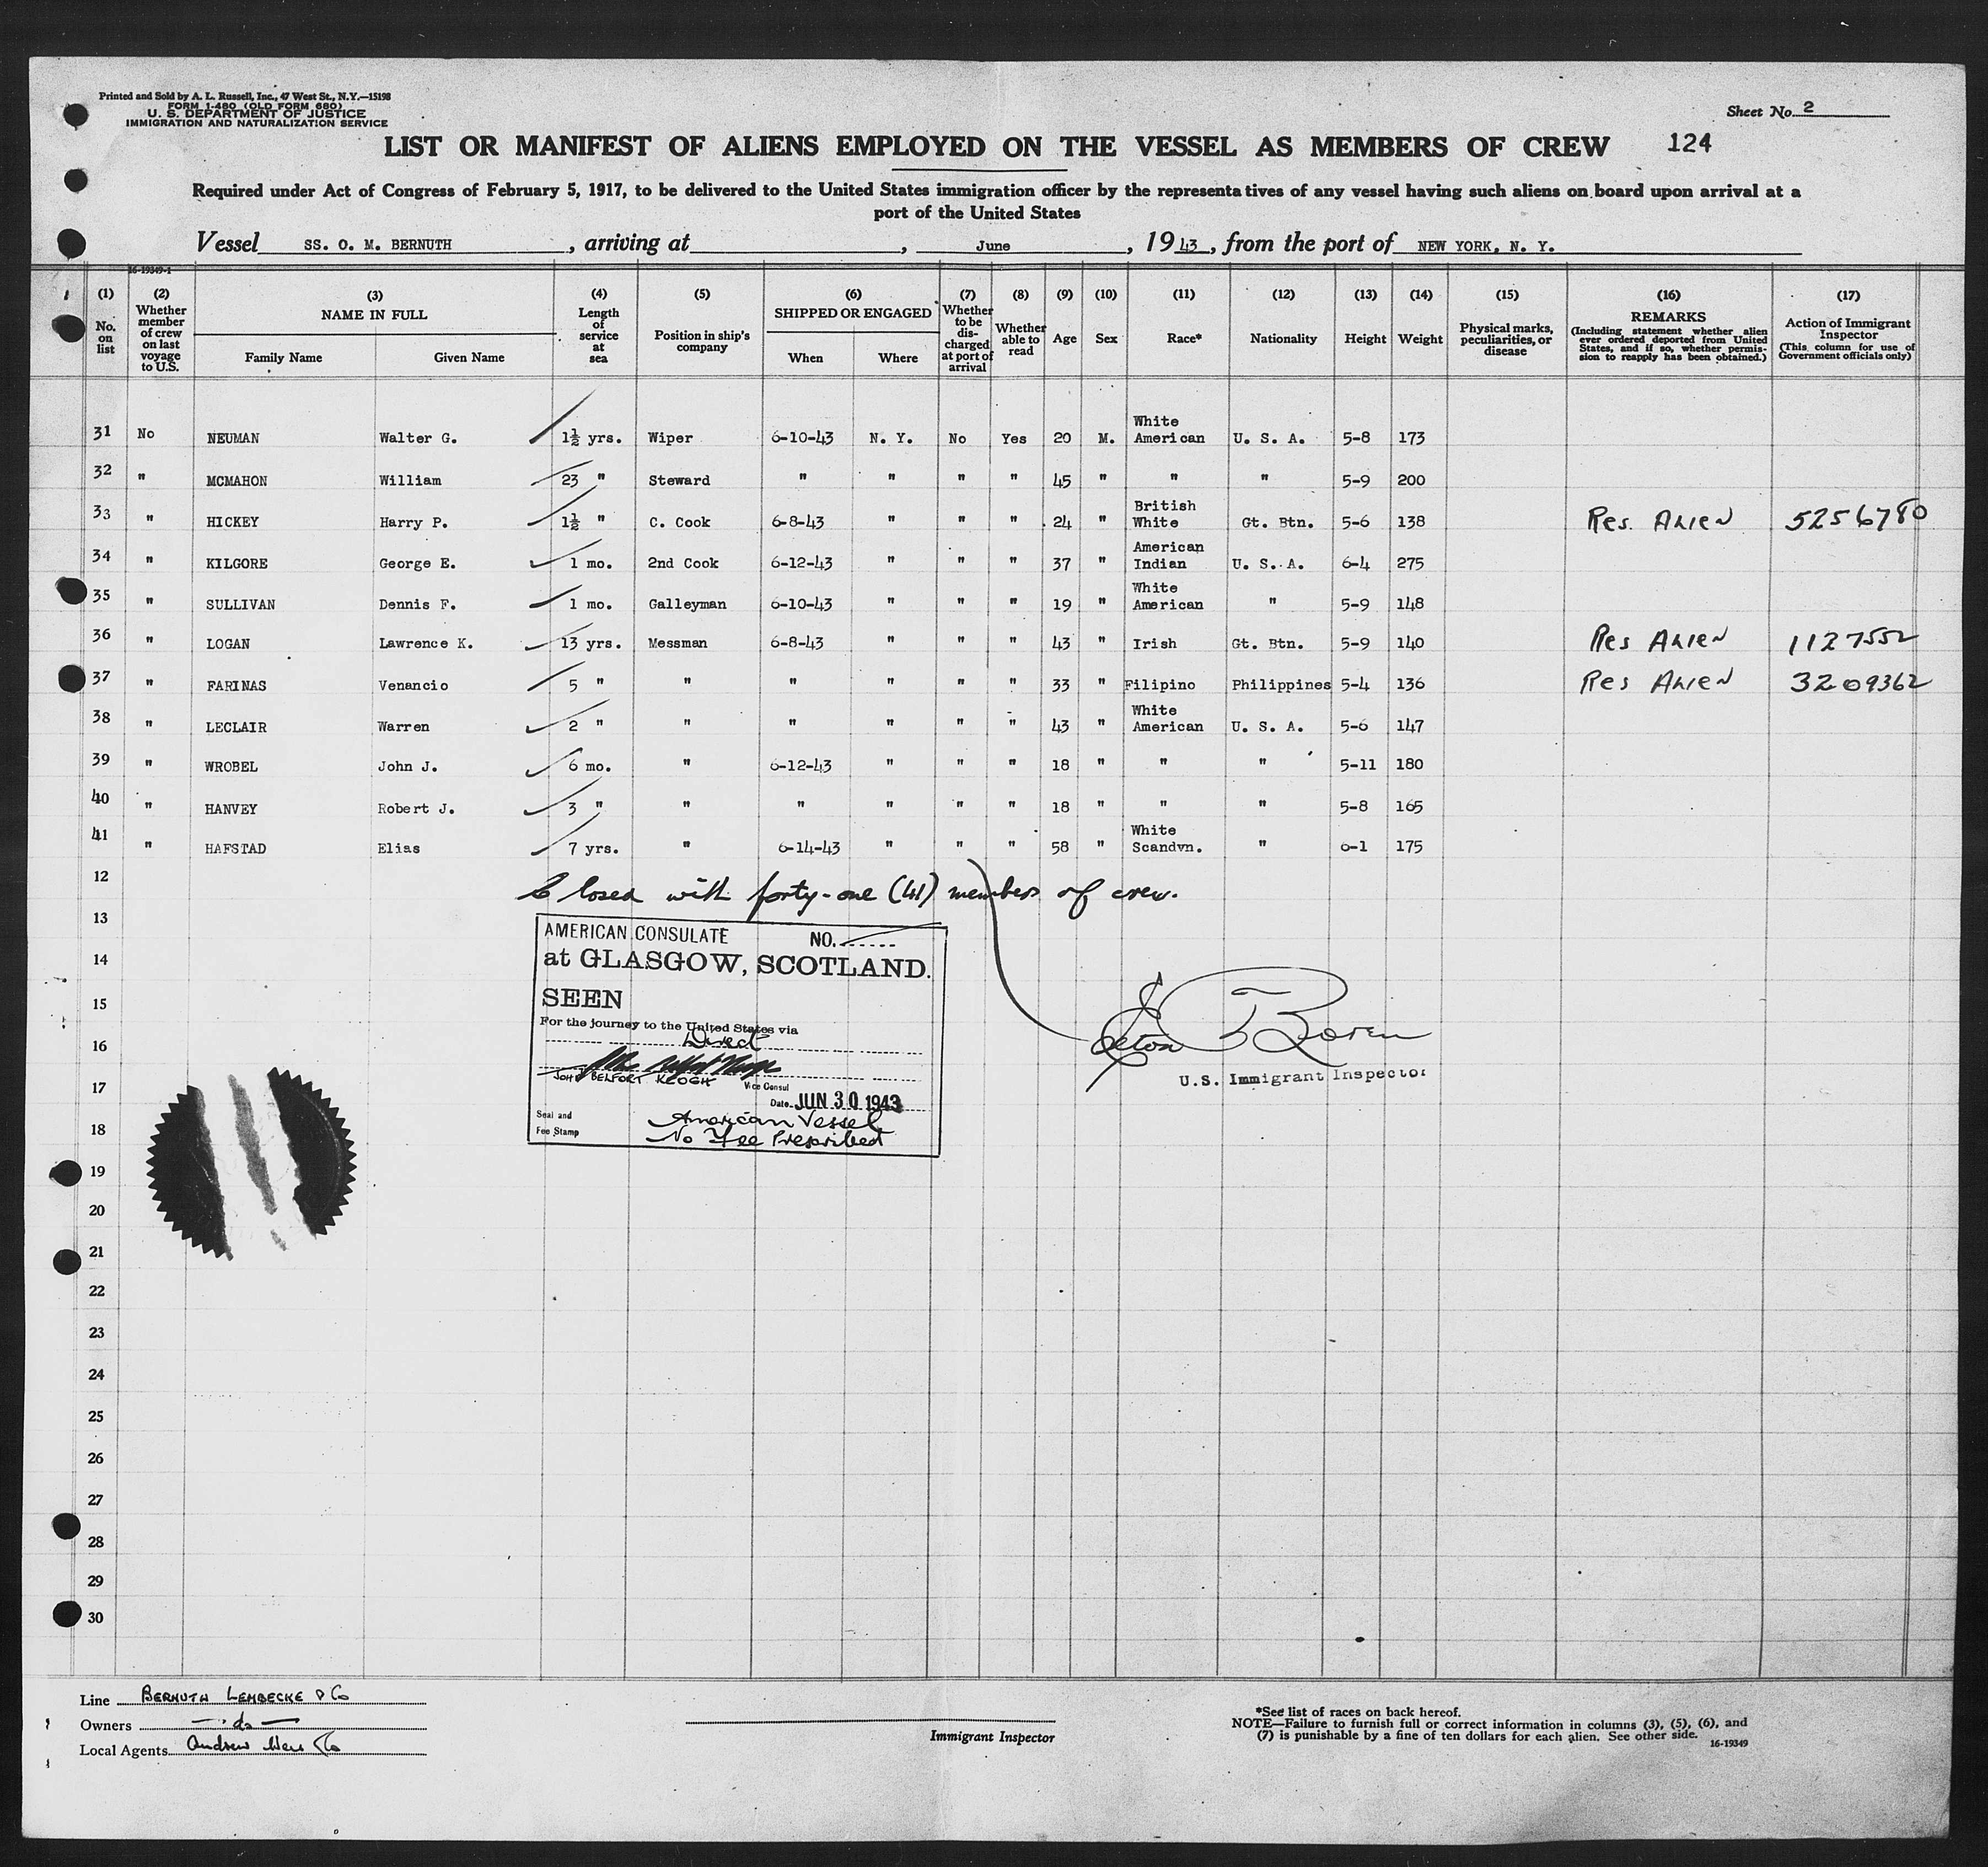 Printed and Sold by A. L. Russell, Inc., 47 West St., N.Y.—15198
FORM I-480 (OLD FORM 680)
U. S. DEPARTMENT OF JUSTICE
IMMIGRATION AND NATURALIZATION SERVICE
Sheet No. 2
LIST OR MANIFEST OF ALIENS EMPLOYED ON THE VESSEL AS MEMBERS OF CREW 124
Required under Act of Congress of February 5, 1917, to be delivered to the United States immigration officer by the representatives of any vessel having such aliens on board upon arrival at a
port of the United States
Vessel SS. O. M. BERNUTH, arriving at , June, 1943, from the port of NEW YORK, N. Y.
16-19349-1
(1) No. on list
(2) Whether member of crew on last voyage to U.S.
(3) NAME IN FULL
Family Name Given Name
(4) Length of service at sea
(5) Position in ship's company
(6) SHIPPED OR ENGAGED
When Where
(7) Whether to be discharged at port of arrival
(8) Whether able to read
(9) Age
(10) Sex
(11) Race*
(12) Nationality
(13) Height
(14) Weight
(15) Physical marks, peculiarities, or disease
(16) REMARKS (Including statement whether alien ever ordered deported from United States, and if so, whether permission to reapply has been obtained.)
(17) Action of Immigrant Inspector (This column for use of Government officials only)
31 No NEUMAN Walter G. 1½ yrs. Wiper 6-10-43 N. Y. No Yes 20 M. White American U. S. A. 5-8 173
32 " MCMAHON William 23 " Steward " " " " 45 " " " 5-9 200
33 " HICKEY Harry P. 1½ " C. Cook 6-8-43 " " " 24 " British White Gt. Btn. 5-6 138 Res. Alien 5256780
34 " KILGORE George E. 1 mo. 2nd Cook 6-12-43 " " " 37 " American Indian U. S. A. 6-4 275
35 " SULLIVAN Dennis F. 1 mo. Galleyman 6-10-43 " " " 19 " White American " 5-9 148
36 " LOGAN Lawrence K. 13 yrs. Messman 6-8-43 " " " 43 " Irish Gt. Btn. 5-9 140 Res Alien 1127552
37 " FARINAS Venancio 5 " " " " " " 33 " Filipino Philippines 5-4 136 Res Alien 3209362
38 " LECLAIR Warren 2 " " " " " " 43 " White American U. S. A. 5-6 147
39 " WROBEL John J. 6 mo. " 6-12-43 " " " 18 " " " 5-11 180
40 " HANVEY Robert J. 3 " " " " " " 18 " " " 5-8 165
41 " HAFSTAD Elias 7 yrs. " 6-14-43 " " " 58 " White Scandvn. " 6-1 175
12
Closed with forty-one (41) members of crew.
13
AMERICAN CONSULATE NO.
14
at GLASGOW, SCOTLAND.
SEEN
15
For the journey to the United States via
Direct
16
JOHN BELFORT KEOGH Vice Consul
U.S. Immigrant Inspector
17
Date JUN 30 1943
Seal and
Fee Stamp
American Vessel
No Fee Prescribed
18
19
20
21
22
23
24
25
26
27
28
29
30
Line BERNUTH LEMBECKE & Co
Owners — do —
Local Agents Andrew Weir & Co
Immigrant Inspector
*See list of races on back hereof.
NOTE—Failure to furnish full or correct information in columns (3), (5), (6), and
(7) is punishable by a fine of ten dollars for each alien. See other side.
16-19349